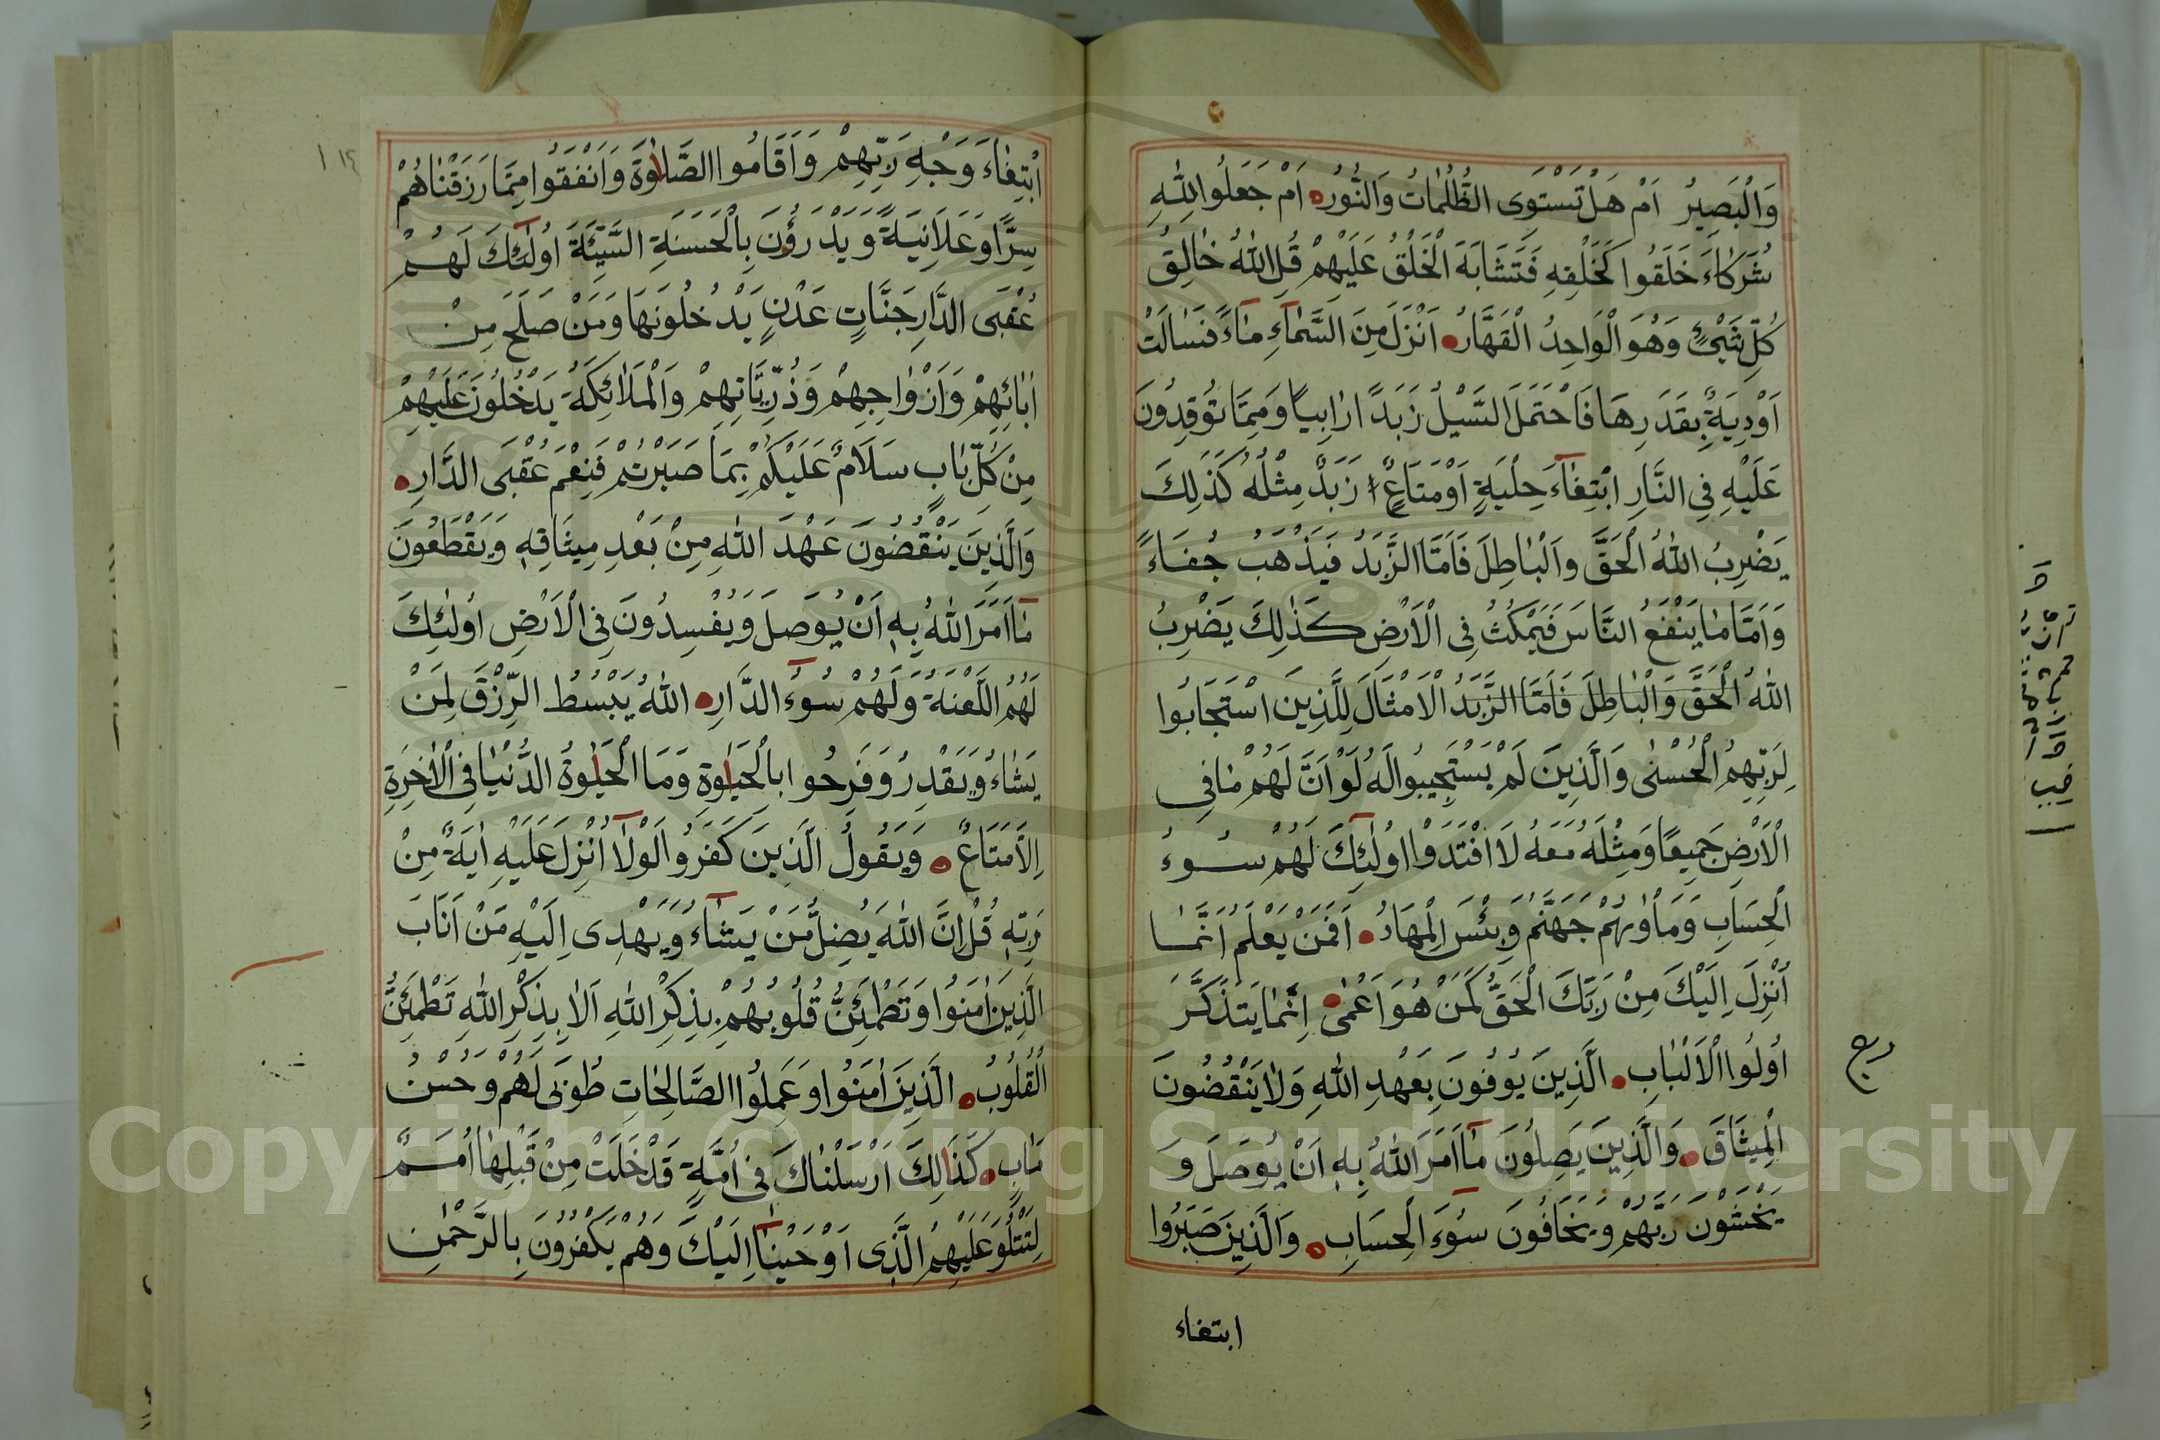 وَالْبَصِيرُ اَمْ هَلْ تَسْتَوِى الظُّلُمَاتُ وَالنُّورُ اَمْ جَعَلُوا لِلّٰهِ
شُرَكَاءَ خَلَقُوا كَخَلْقِهِ فَتَشَابَهَ الْخَلْقُ عَلَيْهِمْ قُلِ اللّٰهُ خَالِقُ
كُلِّ شَيْءٍ وَهُوَ الْوَاحِدُ الْقَهَّارُ اَنْزَلَ مِنَ السَّمَآءِ مَآءً فَسَالَتْ
اَوْدِيَةٌ بِقَدَرِهَا فَاحْتَمَلَ السَّيْلُ زَبَدًا رَابِيًا وَمِمَّا تُوقِدُونَ
عَلَيْهِ فِي النَّارِ ابْتِغَآءَ حِلْيَةٍ اَوْ مَتَاعٍ زَبَدٌ مِثْلُهُ كَذَلِكَ
يَضْرِبُ اللّٰهُ الْحَقَّ وَالْبَاطِلَ فَاَمَّا الزَّبَدُ فَيَذْهَبُ جُفَاءً
وَاَمَّا مَا يَنْفَعُ النَّاسَ فَيَمْكُثُ فِي الْاَرْضِ كَذٰلِكَ يَضْرِبُ
اللّٰهُ الْحَقَّ وَالْبَاطِلَ فَاَمَّا الزَّبَدُ الْاَمْثَالَ لِلَّذِينَ اسْتَجَابُوا
لِرَبِّهِمُ الْحُسْنٰى وَالَّذِينَ لَمْ يَسْتَجِيبُوا لَهُ لَوْ اَنَّ لَهُمْ مَا فِي
الْاَرْضِ جَمِيعًا وَمِثْلَهُ مَعَهُ لَا افْتَدَوْا اُولٰٓئِكَ لَهُمْ سُوءُ
الْحِسَابِ وَمَاْوٰيهُمْ جَهَنَّمُ وَبِئْسَ الْمِهَادُ اَفَمَنْ يَعْلَمُ اَنَّمَا
اُنْزِلَ اِلَيْكَ مِنْ رَبِّكَ الْحَقُّ كَمَنْ هُوَ اَعْمٰى اِنَّمَا يَتَذَكَّرُ
اُولُوا الْاَلْبَابِ الَّذِينَ يُوفُونَ بِعَهْدِ اللّٰهِ وَلَا يَنْقُضُونَ
الْمِيثَاقَ وَالَّذِينَ يَصِلُونَ مَآ اَمَرَ اللّٰهُ بِهِ اَنْ يُوصَلَ وَ
يَخْشَوْنَ رَبَّهُمْ وَيَخَافُونَ سُوٓءَ الْحِسَابِ وَالَّذِينَ صَبَرُوا
ابتغاء
ابْتِغَاءَ وَجْهِ رَبِّهِمْ وَاَقَامُوا الصَّلٰوةَ وَاَنْفَقُوا مِمَّا رَزَقْنَاهُمْ
سِرًّا وَعَلَانِيَةً وَيَدْرَؤُنَ بِالْحَسَنَةِ السَّيِّئَةَ اُولٰٓئِكَ لَهُمْ
عُقْبَى الدَّارِ جَنَّاتِ عَدْنٍ يَدْخُلُونَهَا وَمَنْ صَلَحَ مِنْ
اٰبَائِهِمْ وَاَزْوَاجِهِمْ وَذُرِّيَّاتِهِمْ وَالْمَلَائِكَةُ يَدْخُلُونَ عَلَيْهِمْ
مِنْ كُلِّ بَابٍ سَلَامٌ عَلَيْكُمْ بِمَا صَبَرْتُمْ فَنِعْمَ عُقْبَى الدَّارِ
وَالَّذِينَ يَنْقُضُونَ عَهْدَ اللّٰهِ مِنْ بَعْدِ مِيثَاقِهِ وَيَقْطَعُونَ
مَآ اَمَرَ اللّٰهُ بِهِ اَنْ يُوصَلَ وَيُفْسِدُونَ فِي الْاَرْضِ اُولٰئِكَ
لَهُمُ اللَّعْنَةُ وَلَهُمْ سُوٓءُ الدَّارِ اللّٰهُ يَبْسُطُ الرِّزْقَ لِمَنْ
يَشَاءُ وَيَقْدِرُ وَفَرِحُوا بِالْحَيٰوةِ وَمَا الْحَيٰوةُ الدُّنْيَا فِي الْاٰخِرَةِ
اِلَّا مَتَاعٌ وَيَقُولُ الَّذِينَ كَفَرُوا لَوْلَآ اُنْزِلَ عَلَيْهِ اٰيَةٌ مِنْ
رَبِّهِ قُلْ اِنَّ اللّٰهَ يُضِلُّ مَنْ يَشَآءُ وَيَهْدِى اِلَيْهِ مَنْ اَنَابَ
الَّذِينَ اٰمَنُوا وَتَطْمَئِنُّ قُلُوبُهُمْ بِذِكْرِ اللّٰهِ اَلَا بِذِكْرِ اللّٰهِ تَطْمَئِنُّ
الْقُلُوبُ الَّذِينَ اٰمَنُوا وَعَمِلُوا الصَّالِحَاتِ طُوبَى لَهُمْ وَحُسْنُ
مَاٰبٍ كَذَالِكَ اَرْسَلْنَاكَ فِي اُمَّةٍ قَدْ خَلَتْ مِنْ قَبْلِهَا اُمَمٌ
لِتَتْلُوَ عَلَيْهِمُ الَّذِى اَوْحَيْنَآ اِلَيْكَ وَهُمْ يَكْفُرُونَ بِالرَّحْمٰنِ
Copyright © King Saud University